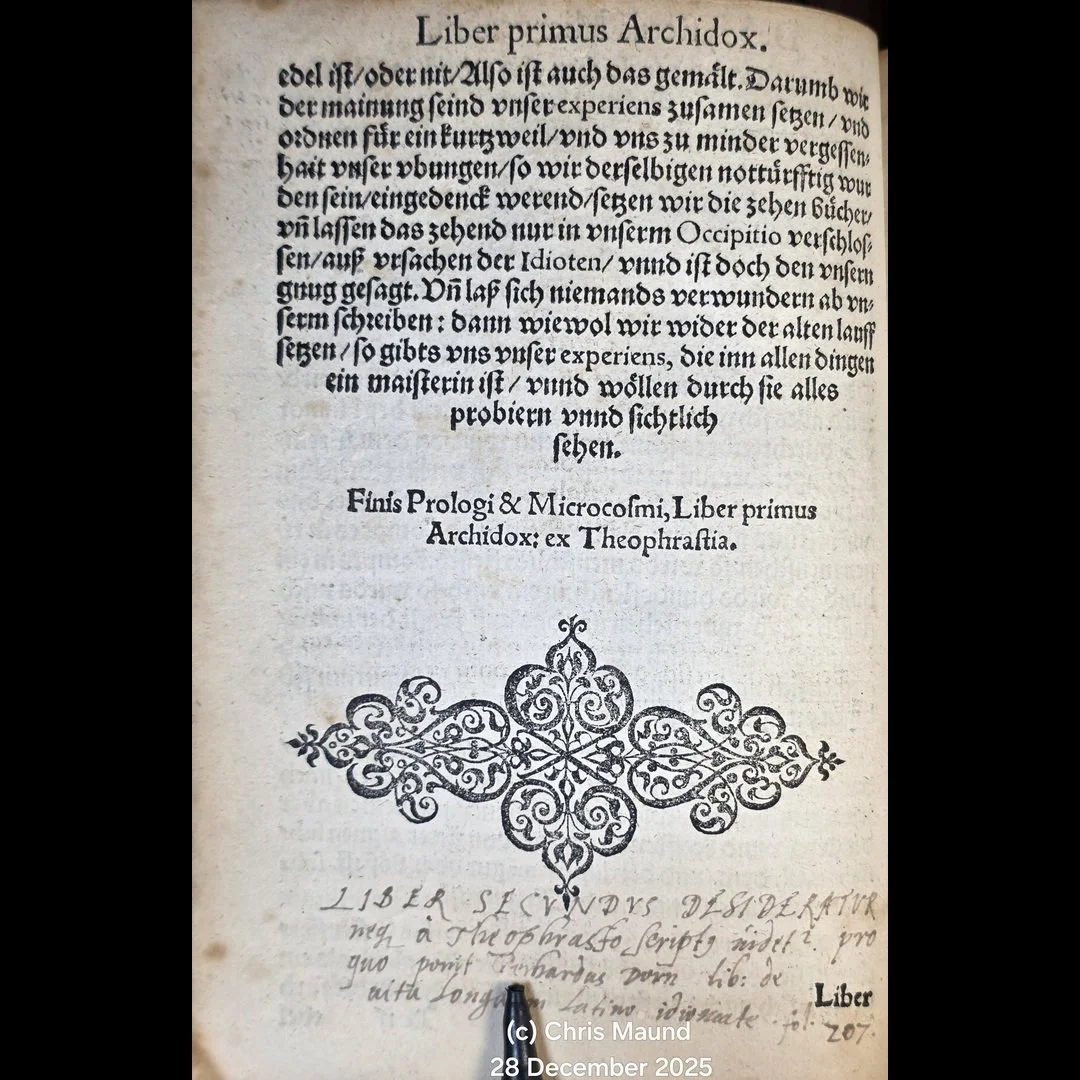 Liber primus Archidox.
edel ist/oder nit/Also ist auch das gemält. Darumb wir
der mainung seind vnser experiens zusamen setzen/vnd
ordnen für ein kurtzweil/vnd vns zu minder vergessen⸗
hait vnser vbungen/so wir derselbigen nottürfftig wur
den sein/eingedenck werend/setzen wir die zehen Bücher/
vñ lassen das zehend nur in vnserm Occipitio verschlos⸗
sen/auß vrsachen der Idioten/ vnnd ist doch den vnsern
gnug gesagt. Vñ laß sich niemands verwundern ab vn⸗
serm schreiben: dann wiewol wir wider der alten lauff
setzen/so gibts vns vnser experiens, die inn allen dingen
ein maisterin ist/ vnnd wöllen durch sie alles
probiern vnnd sichtlich
sehen.
Finis Prologi & Microcosmi, Liber primus
Archidox: ex Theophrastia.
LIBER SECVNDVS DESIDERATVR
neq à Theophrasto scriptq uidet. pro
quo ponit Gerhardus Dorn lib: de
uita longa Latino idiomate fol.
207.
Liber
(c) Chris Maund
28 December 2025